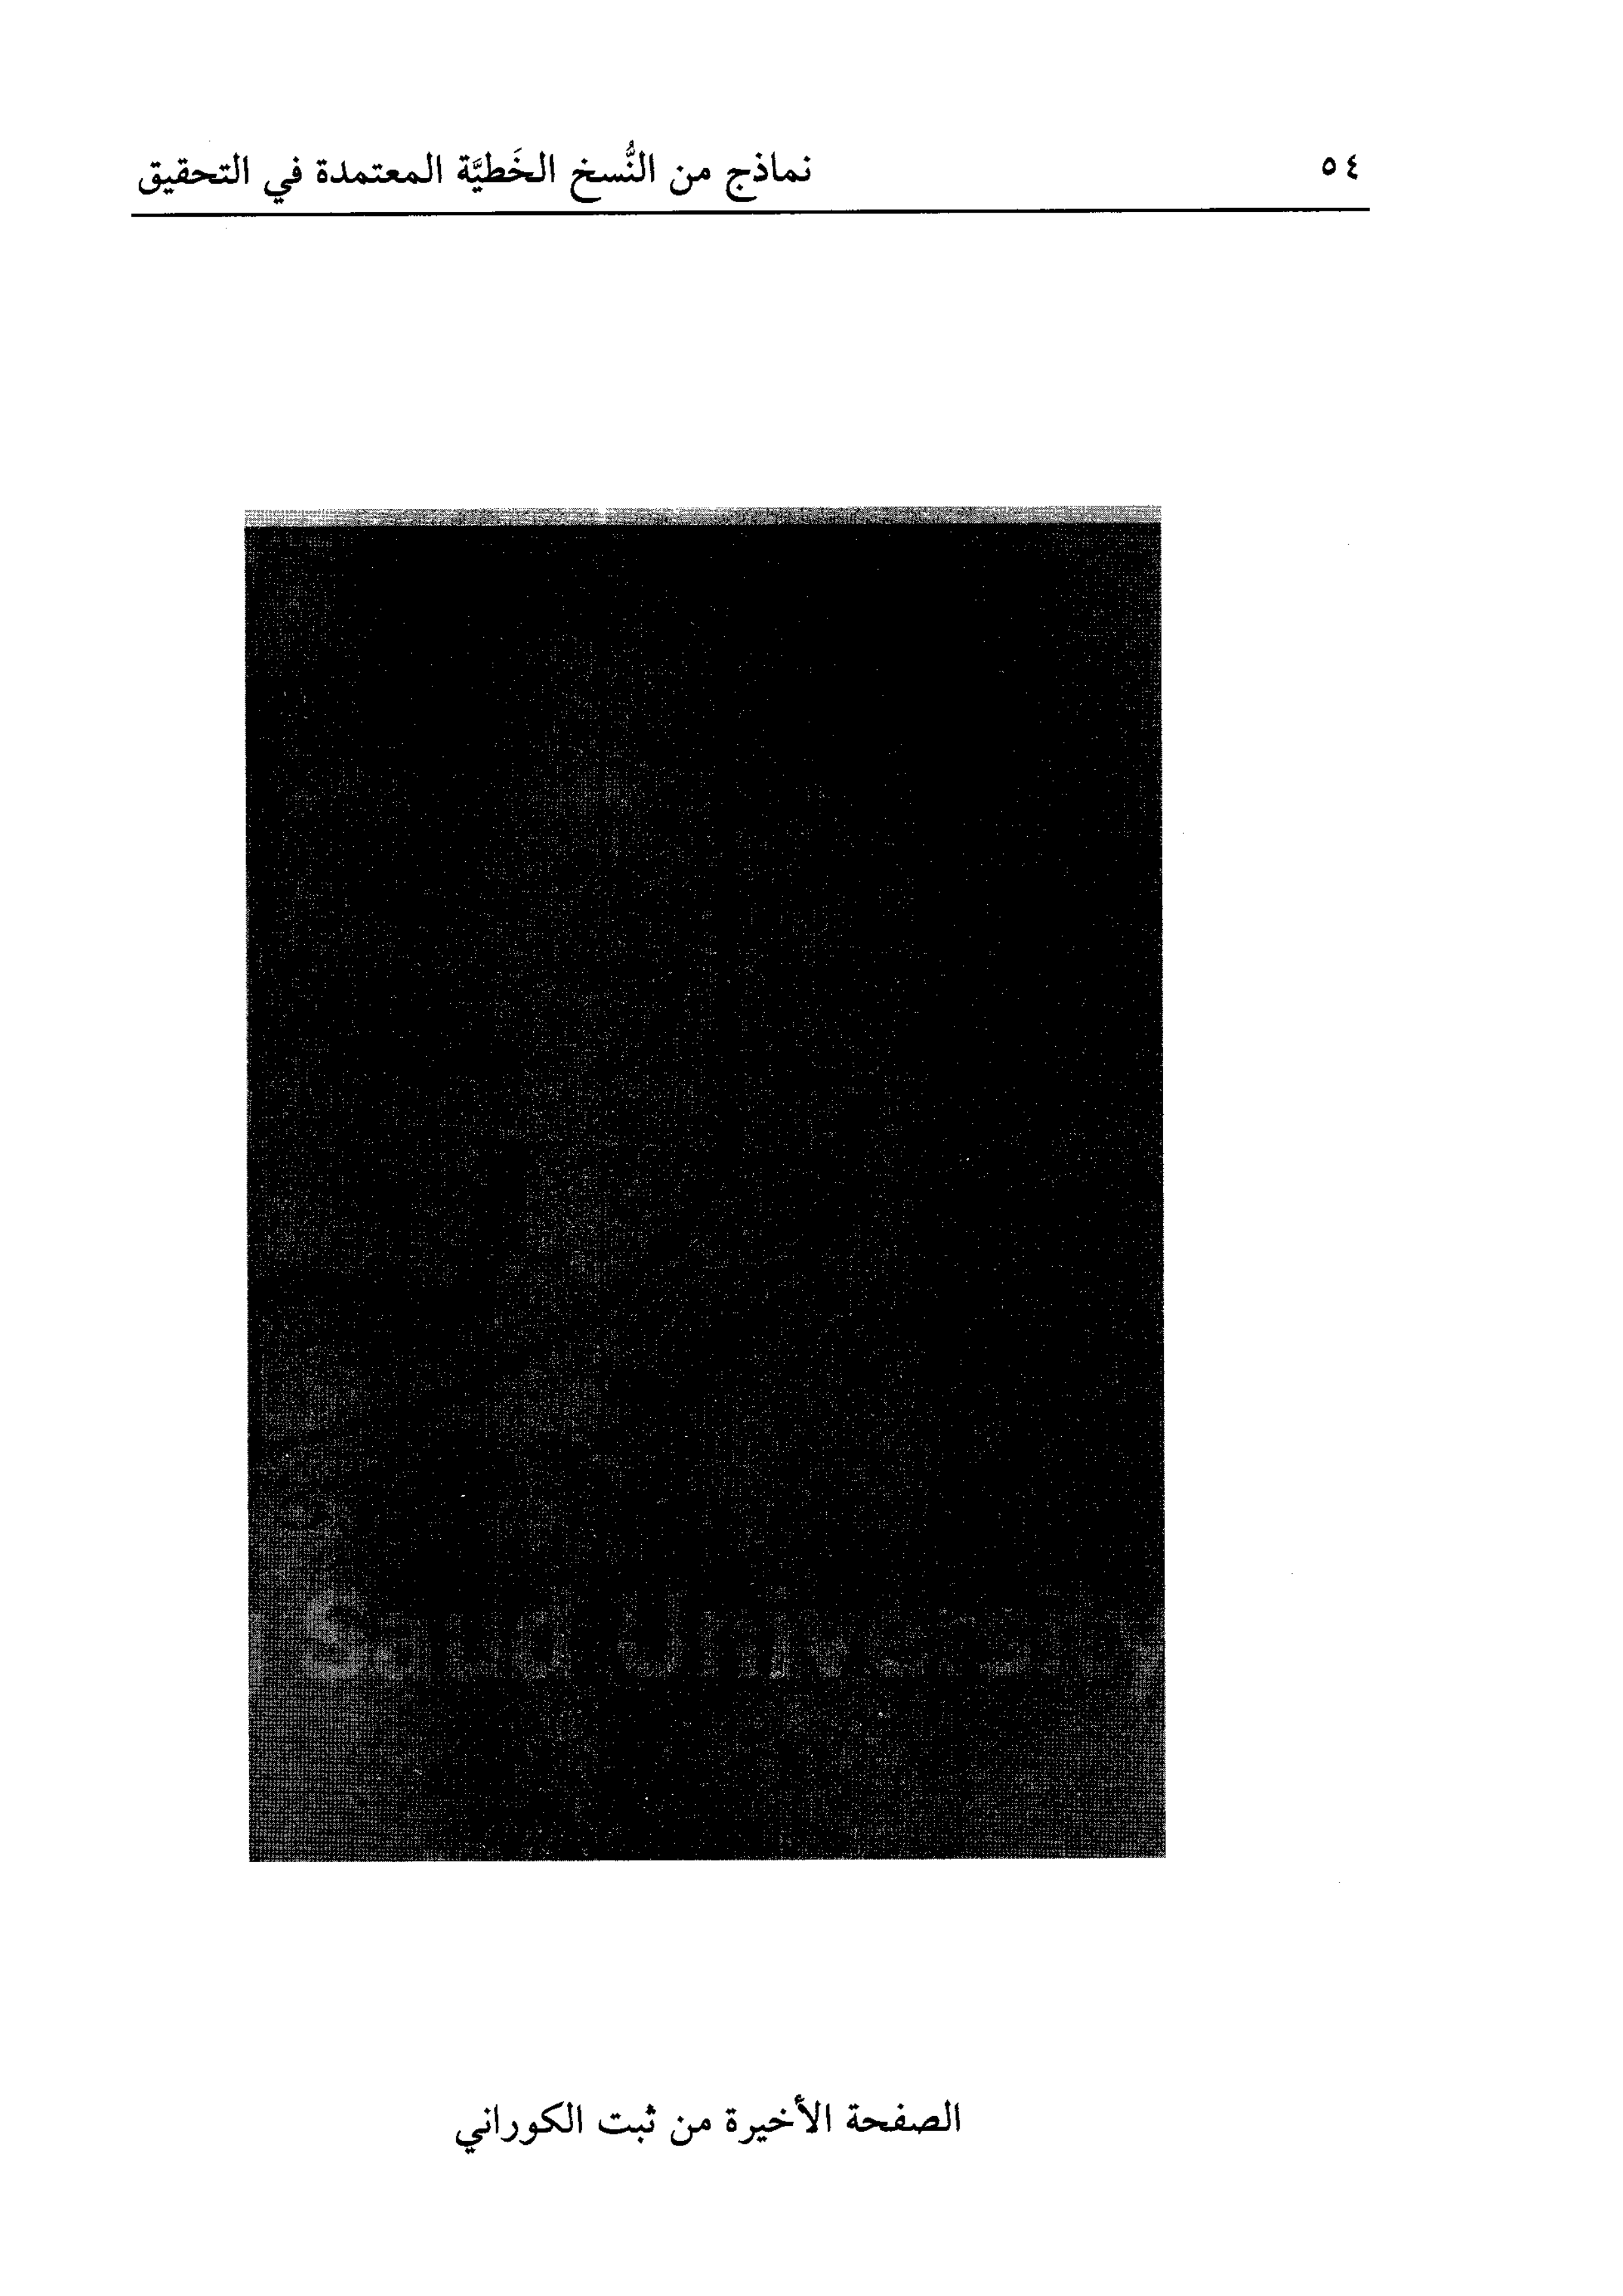 ٥٤ نماذج من النُّسخ الخَطيَّة المعتمدة في التحقيق
Saud University
الصفحة الأخيرة من ثبت الكوراني